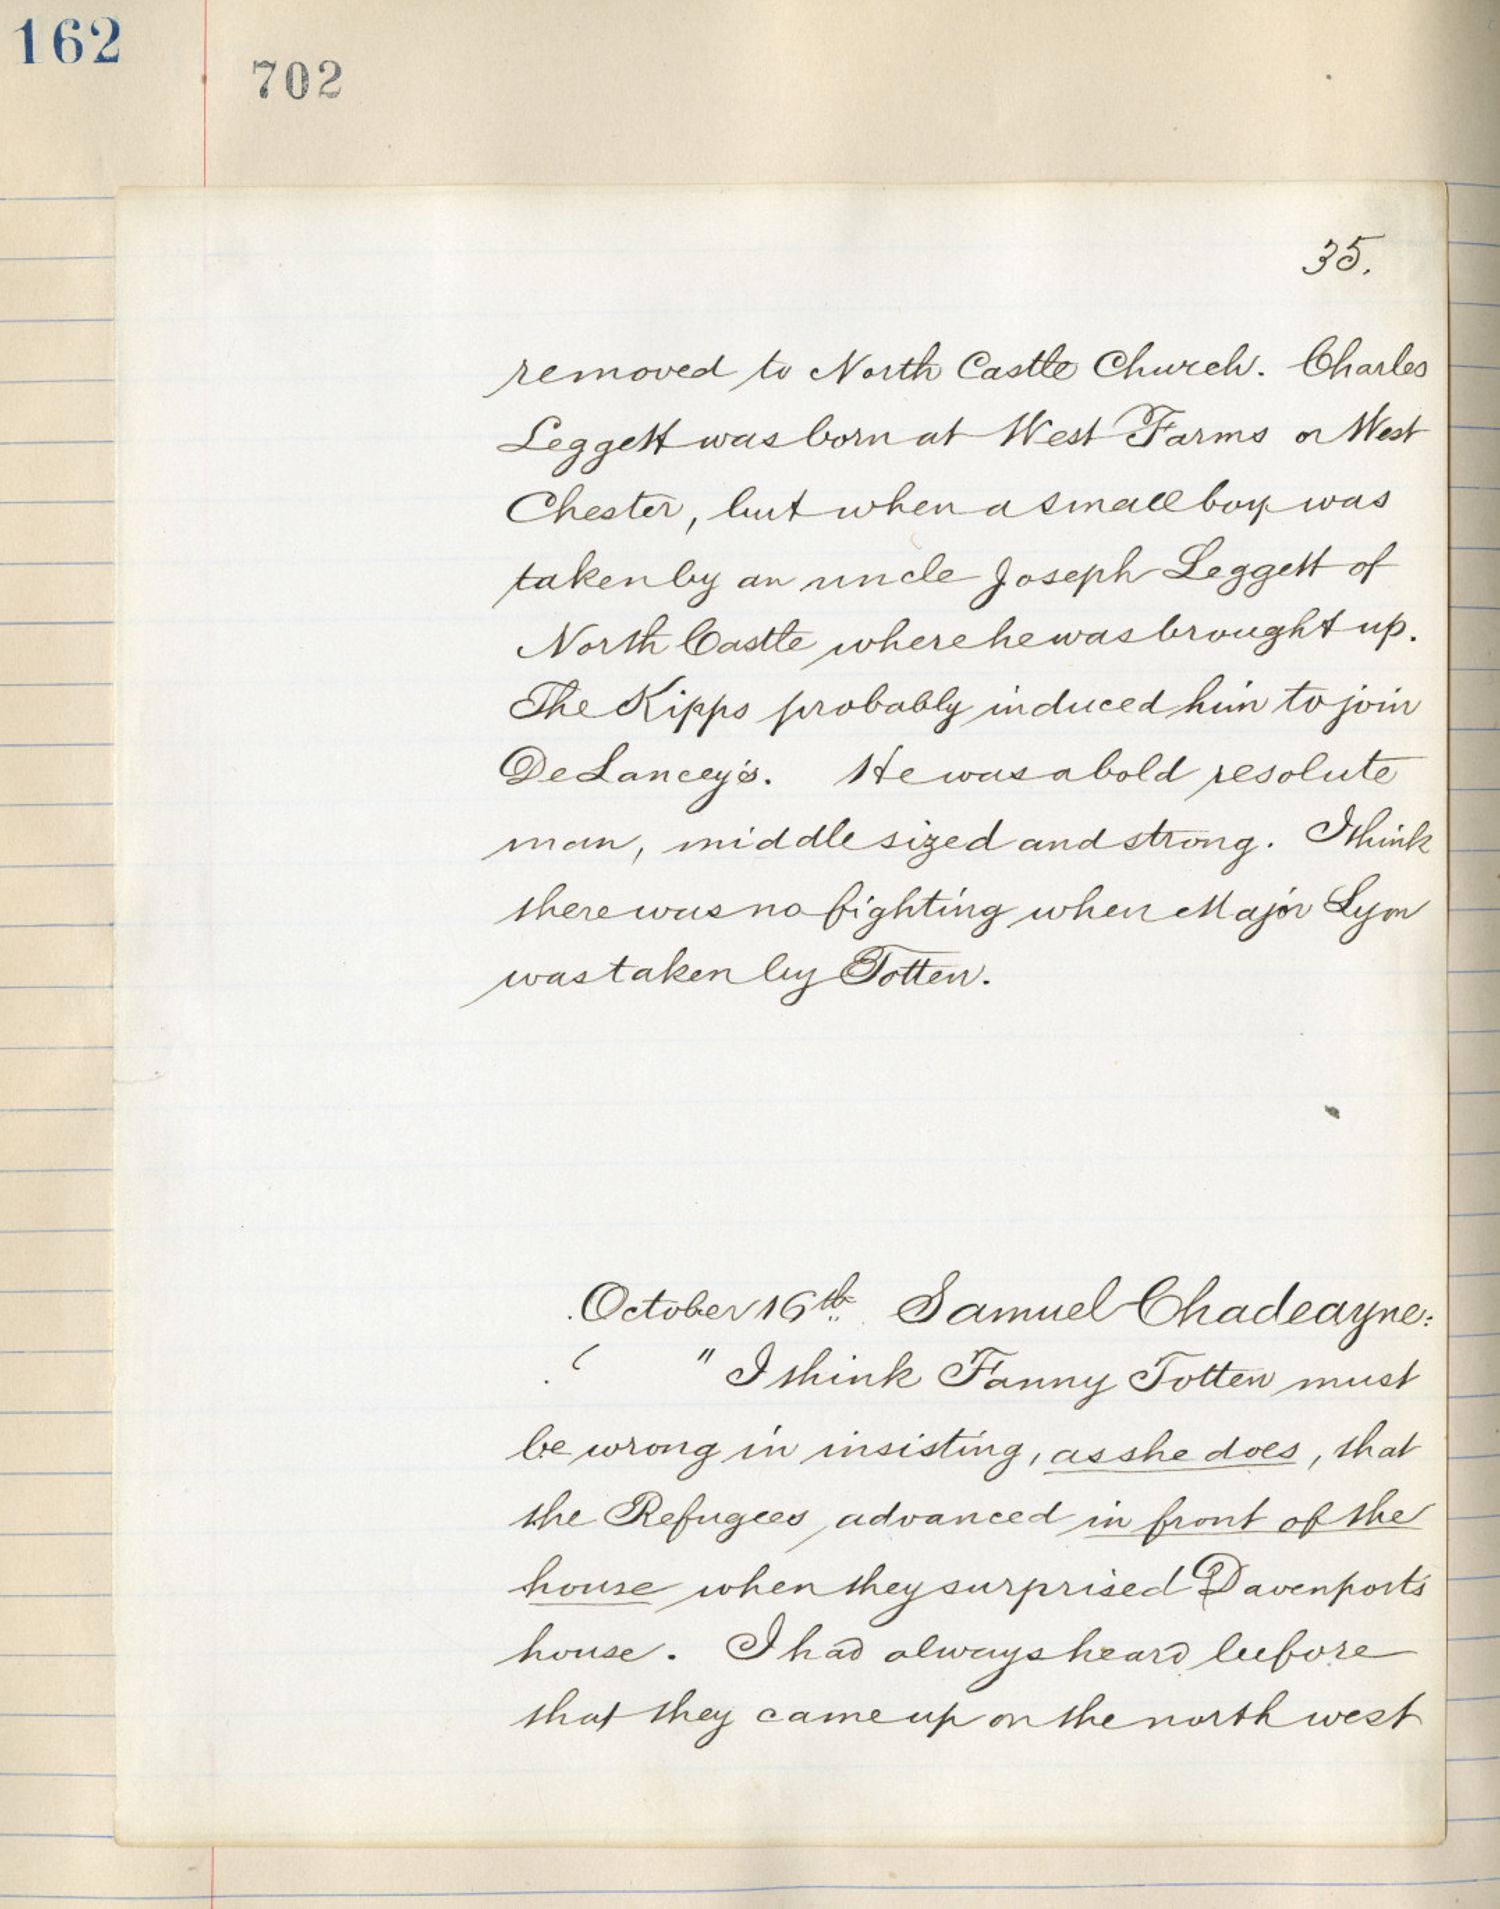 162
702
35.
removed to North Castle Church. Charles
Leggett was born at West Farms or West
Chester, but when a small boy was
taken by an uncle Joseph Leggett of
North Castle where he was brought up.
The Kipps probably induced him to join
DeLancey's. He was a bold resolute
man, middle sized and strong. I think
there was no fighting when Major Lyon
was taken by Totten.
October 16th. Samuel Chadeayne:
" I think Fanny Totten must
be wrong in insisting, as she does, that
the Refugees advanced in front of the
house when they surprised Davenports
house. I had always heard before
that they came up on the north west